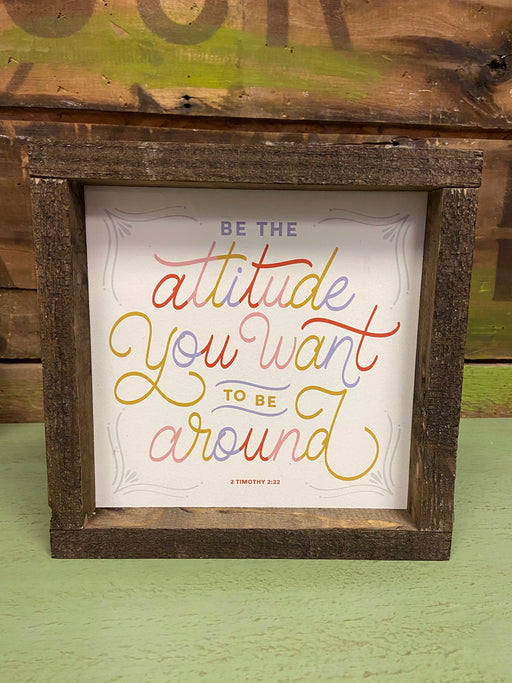 BE THE
attitude
You want
TO BE
around
2 TIMOTHY 2:22